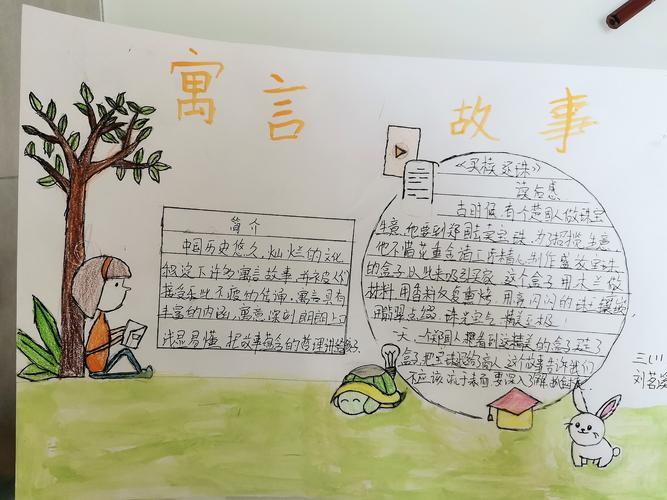 寓言 故事
简介
中国历史悠久,灿烂的文化
积淀下许多寓言故事,并被人们
接受乐此不疲的传诵。寓言具有
丰富的内涵,寓意深刻,朗朗上口
浅显易懂,把故事蕴含的哲理讲
《买椟还珠》
读后感
古时候,有个楚国人做珠宝
生意,他要到郑国去卖宝珠,为了招揽生意
他不惜花重金请工匠精心制作盛放宝珠
的盒子,以此来吸引买家,这个盒子用木兰做
材料,用香料反复熏烤,用亮闪闪的珠玉
用翡翠点缀,珠光宝气,精美至极!
一天,一个郑国人
盒子,把宝珠还给了商人,这个故事告诉我们
不应该 表面,要深入了解
三(1)
刘茗